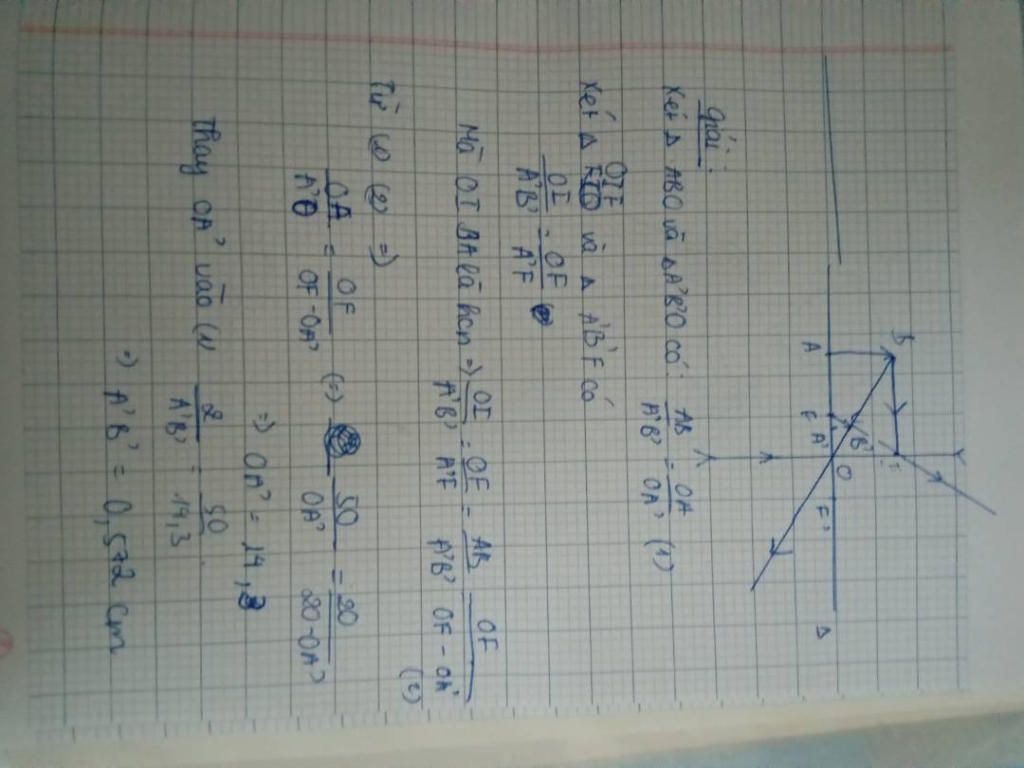 B
I
A F A' B' O F' Δ
Giải:
Xét Δ ABO và ΔA'B'O có: AB/A'B' = OA/OA' (1)
OIF
Xét Δ và Δ A'B'F có
OI/A'B' = OF/A'F
Mà OI BA là hcn => OI/A'B' = OF/A'F = AB/A'B' OF/OF - OA' (2)
Từ (1) (2) =>
OA/A'O = OF/OF-OA' (=) 50/OA' = 20/20-OA'
=) OA' = 14,3
Thay OA' vào (1) 2/A'B' = 50/14,3
=) A'B' = 0,572 cm